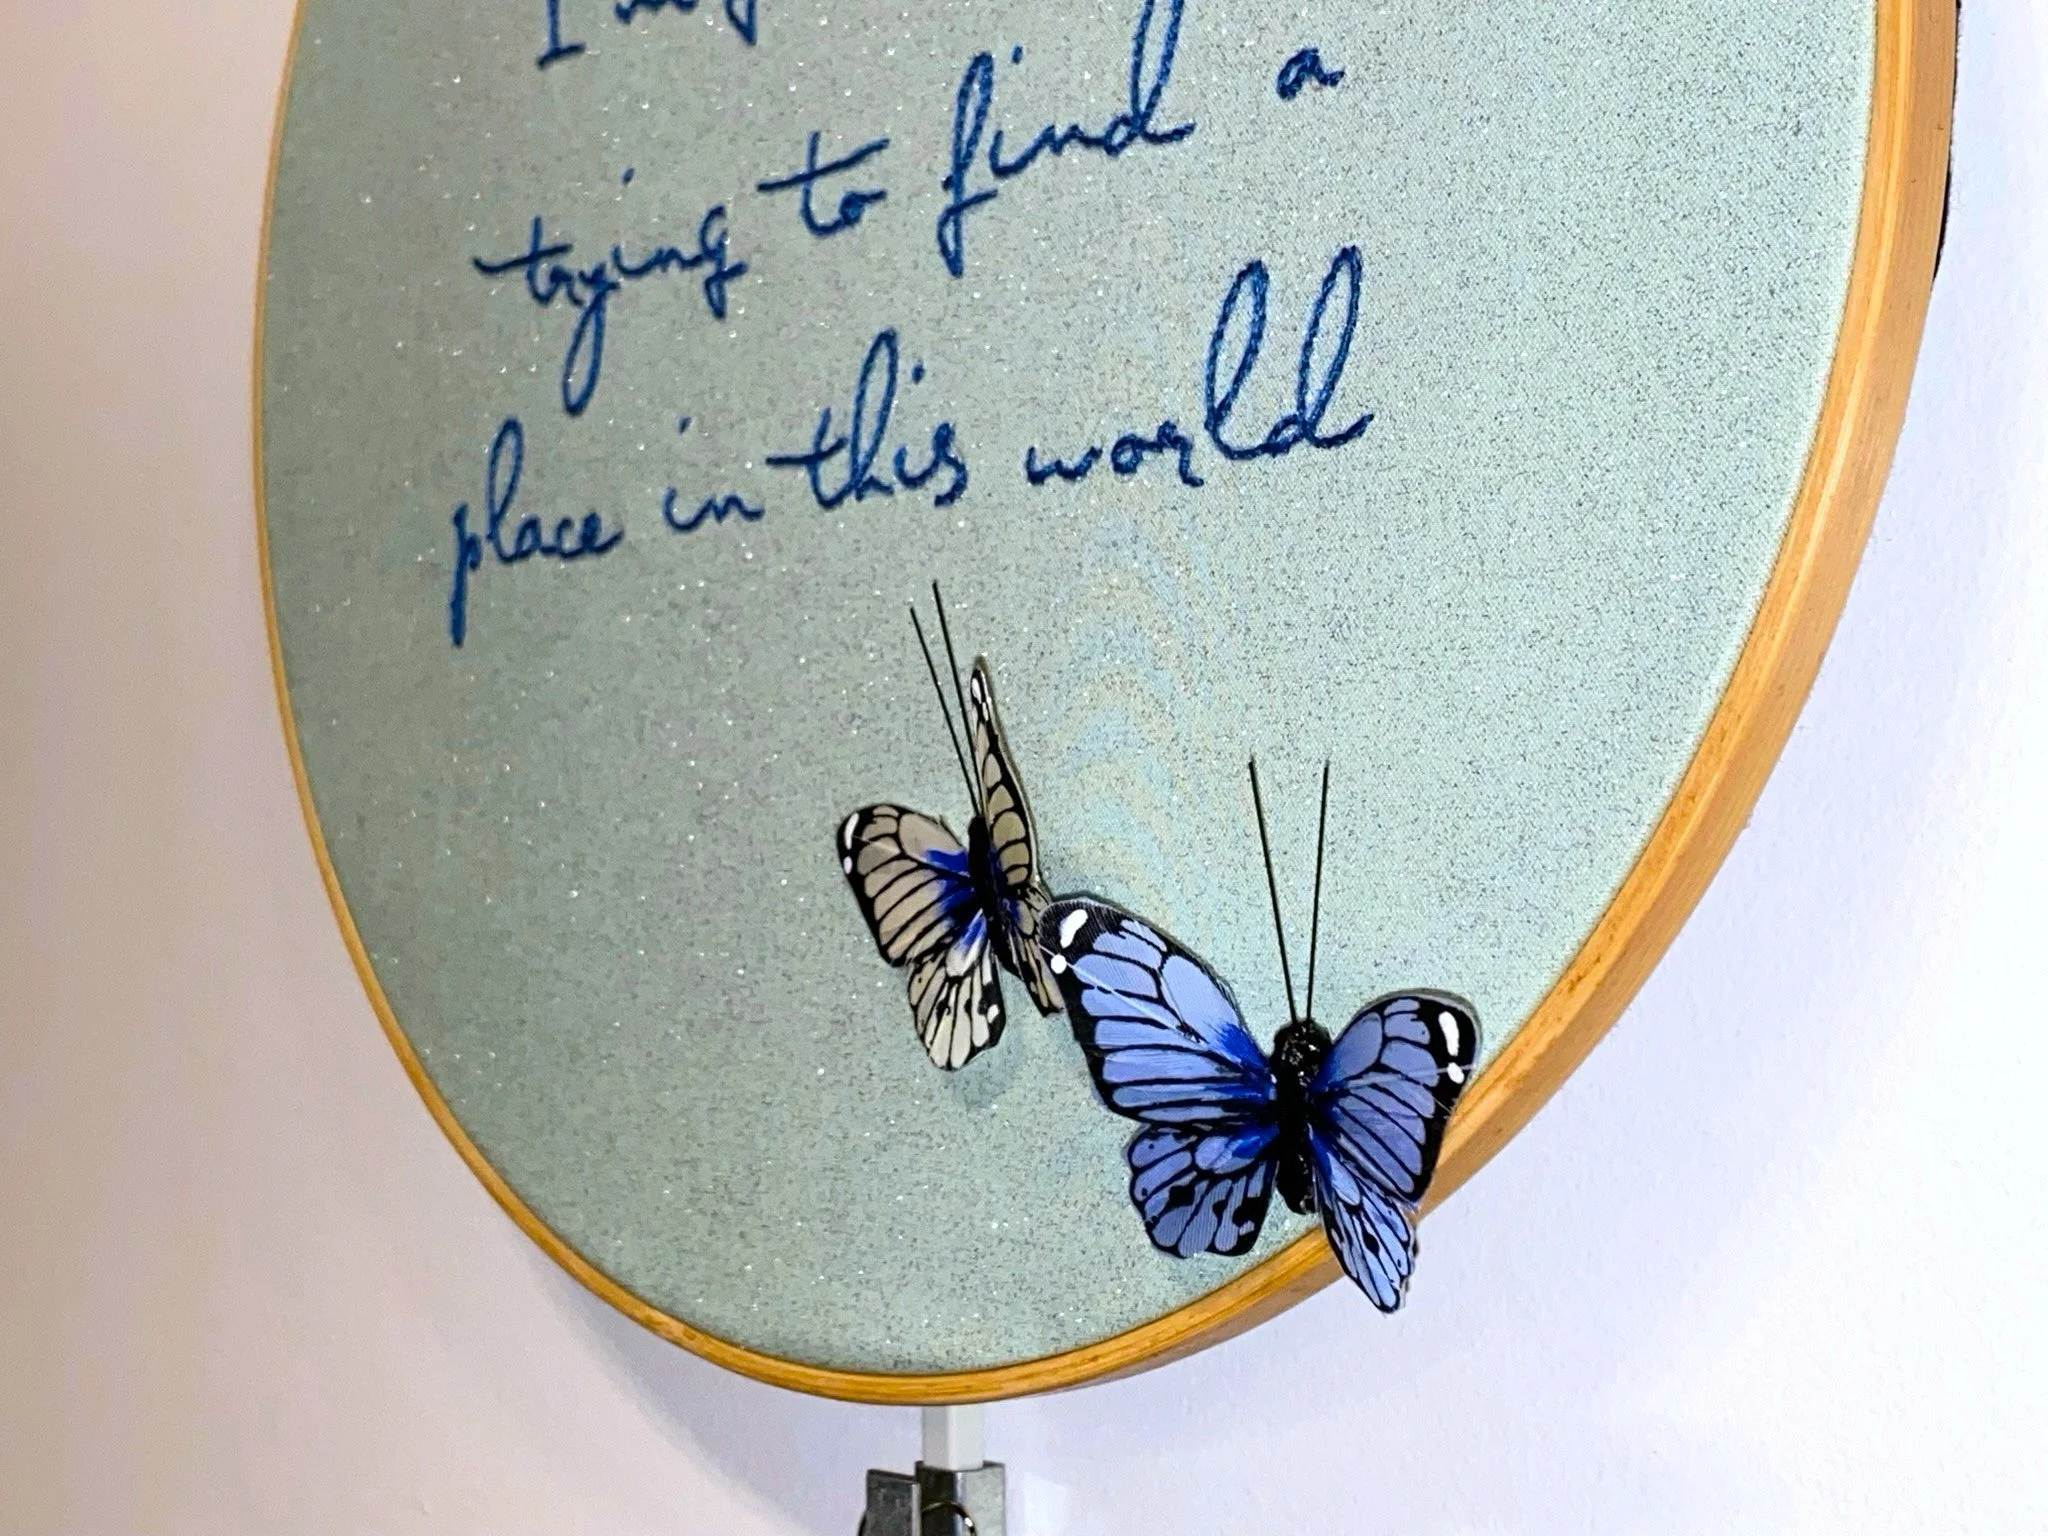 I
trying to find a
place in this world